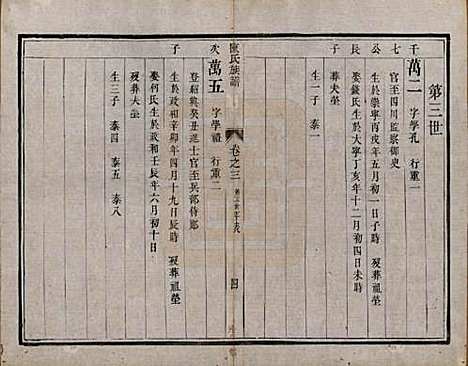 第三世
千七公長子
萬二 字學孔 行重一
官至四川監察御史
生於崇寧丙戌年五月初一日子時
娶錢氏生於大寧丁亥年十二月初四日未時
葬夫塋
生一子 泰一
氏族譜 卷之三 四
次子
萬五 字學禮 行重二
登紹興癸丑進士官至兵部侍郎
生於政和辛卯年四月十九日辰時 歿葬祖塋
娶何氏生於政和壬辰年六月初十日
歿葬夫塋
生三子 泰四 泰五 泰八